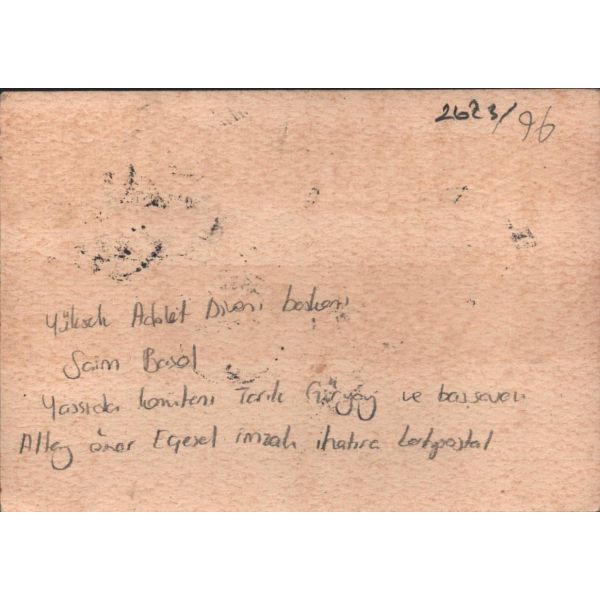 2623/96
Yüksek Adalet Divanı başkanı
Saim Başol
Yassıda komutanı Tarık Güryay ve başsavcı
Altay ömer Egesel imzalı hatıra kartpostal